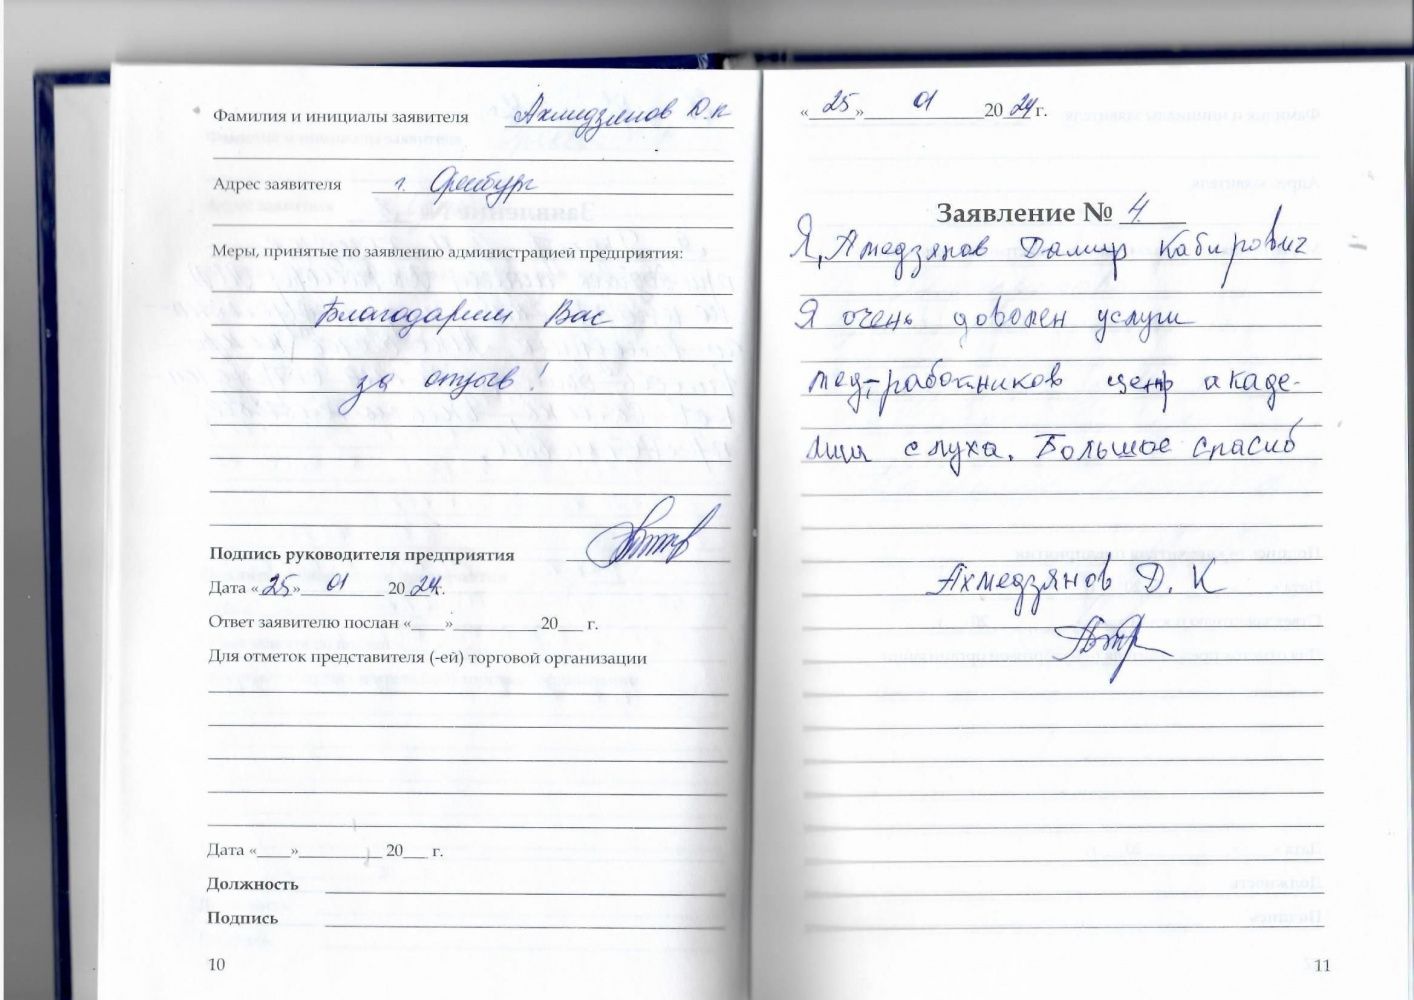 Фамилия и инициалы заявителя Ахмидзянов Д.К
Адрес заявителя г. Оренбург
Меры, принятые по заявлению администрацией предприятия:
Благодарим Вас
за отзыв!
Подпись руководителя предприятия
Дата «25» 01 2024г.
Ответ заявителю послан «____»__________ 20___ г.
Для отметок представителя (-ей) торговой организации
Дата «____»__________ 20___ г.
Должность
Подпись
10
«25» 01 2024г.
Заявление № 4
Я, Амедзянов Дамир Кабирович
Я очень доволен услуги
мед-работников центр акаде-
мии слуха. Большое спасиб
Ахмедзянов Д. К
11